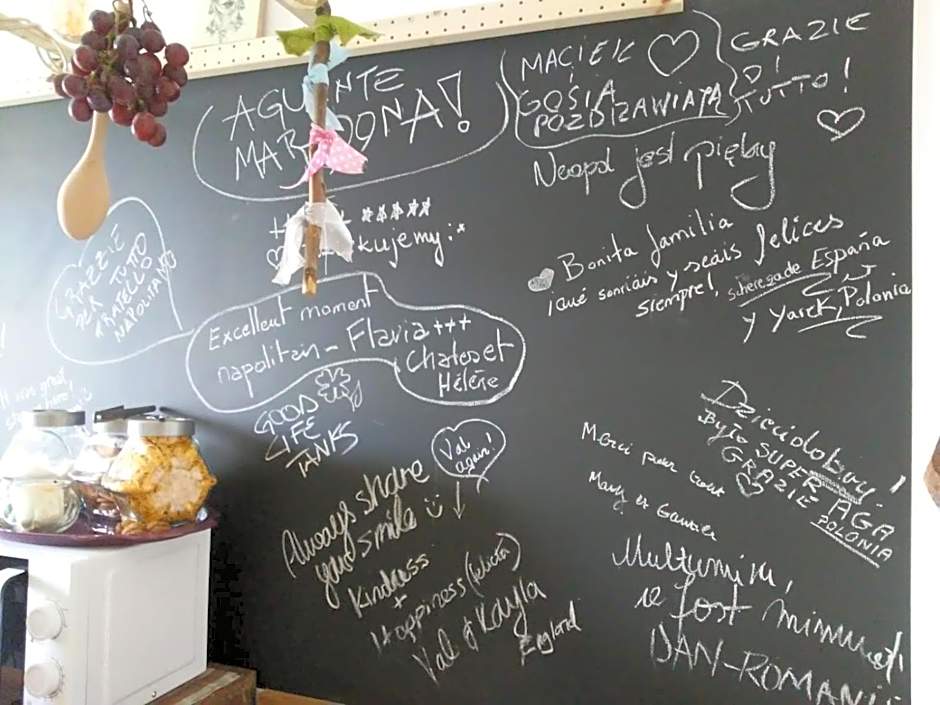 AGUANTE
MARADONA!
MACIEK
GOSIA
POZDRAWIAJĄ
GRAZIE
DI
TUTTO!
Neapol jest piękny
kujemy:*
GRAZZIE
PER TUTTO
FRATELLO
NAPOLITANO
Bonita familia
¡qué sonriáis y seáis felices
siempre!, España
y Yarek, Polonia
Excellent moment
napolitain - Flavia +++
Charles et
Hélène
GOOD
LIFE
TANKS
Val
again!
Always share
your smile
Kindness
+
Happiness (felicità)
Val & Kayla
England
Merci pour tout
Mary et Gautier
Dzień dobry
Było SUPER
GRAZIE AGA
POLONIA
Mulțumim,
a fost minunat!
DAN-ROMANIA